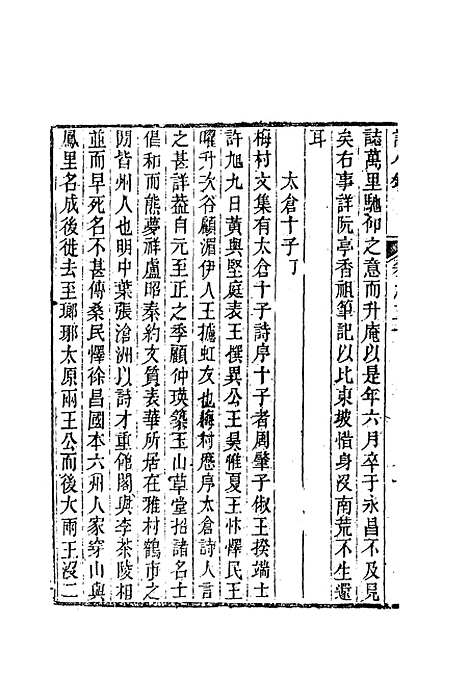 誌萬里馳仰之意而升庵以是年六月卒于永昌不及見
矣右事詳阮亭香祖筆記以此東坡惜身沒南荒不生還
耳
太倉十子
梅村文集有太倉十子詩序十子者周肇子俶王揆端士
許旭九日黃與堅庭表王撰異公王昊惟夏王忭懌民王
曜升次谷顧湄伊人王攄虹友也梅村應序太倉詩人言
之甚詳益自元至正之季顧仲瑛築玉山草堂招諸名士
倡和而熊夢祥盧昭秦約文質表華所居在雅村鶴市之
閒皆州人也明中葉張滄洲以詩才重館閣與李茶陵相
並而早死名不甚傳桑民懌徐昌國本六州人家穿山與
鳳里名成後徙去至瑯琊太原兩王公而後大兩王沒二